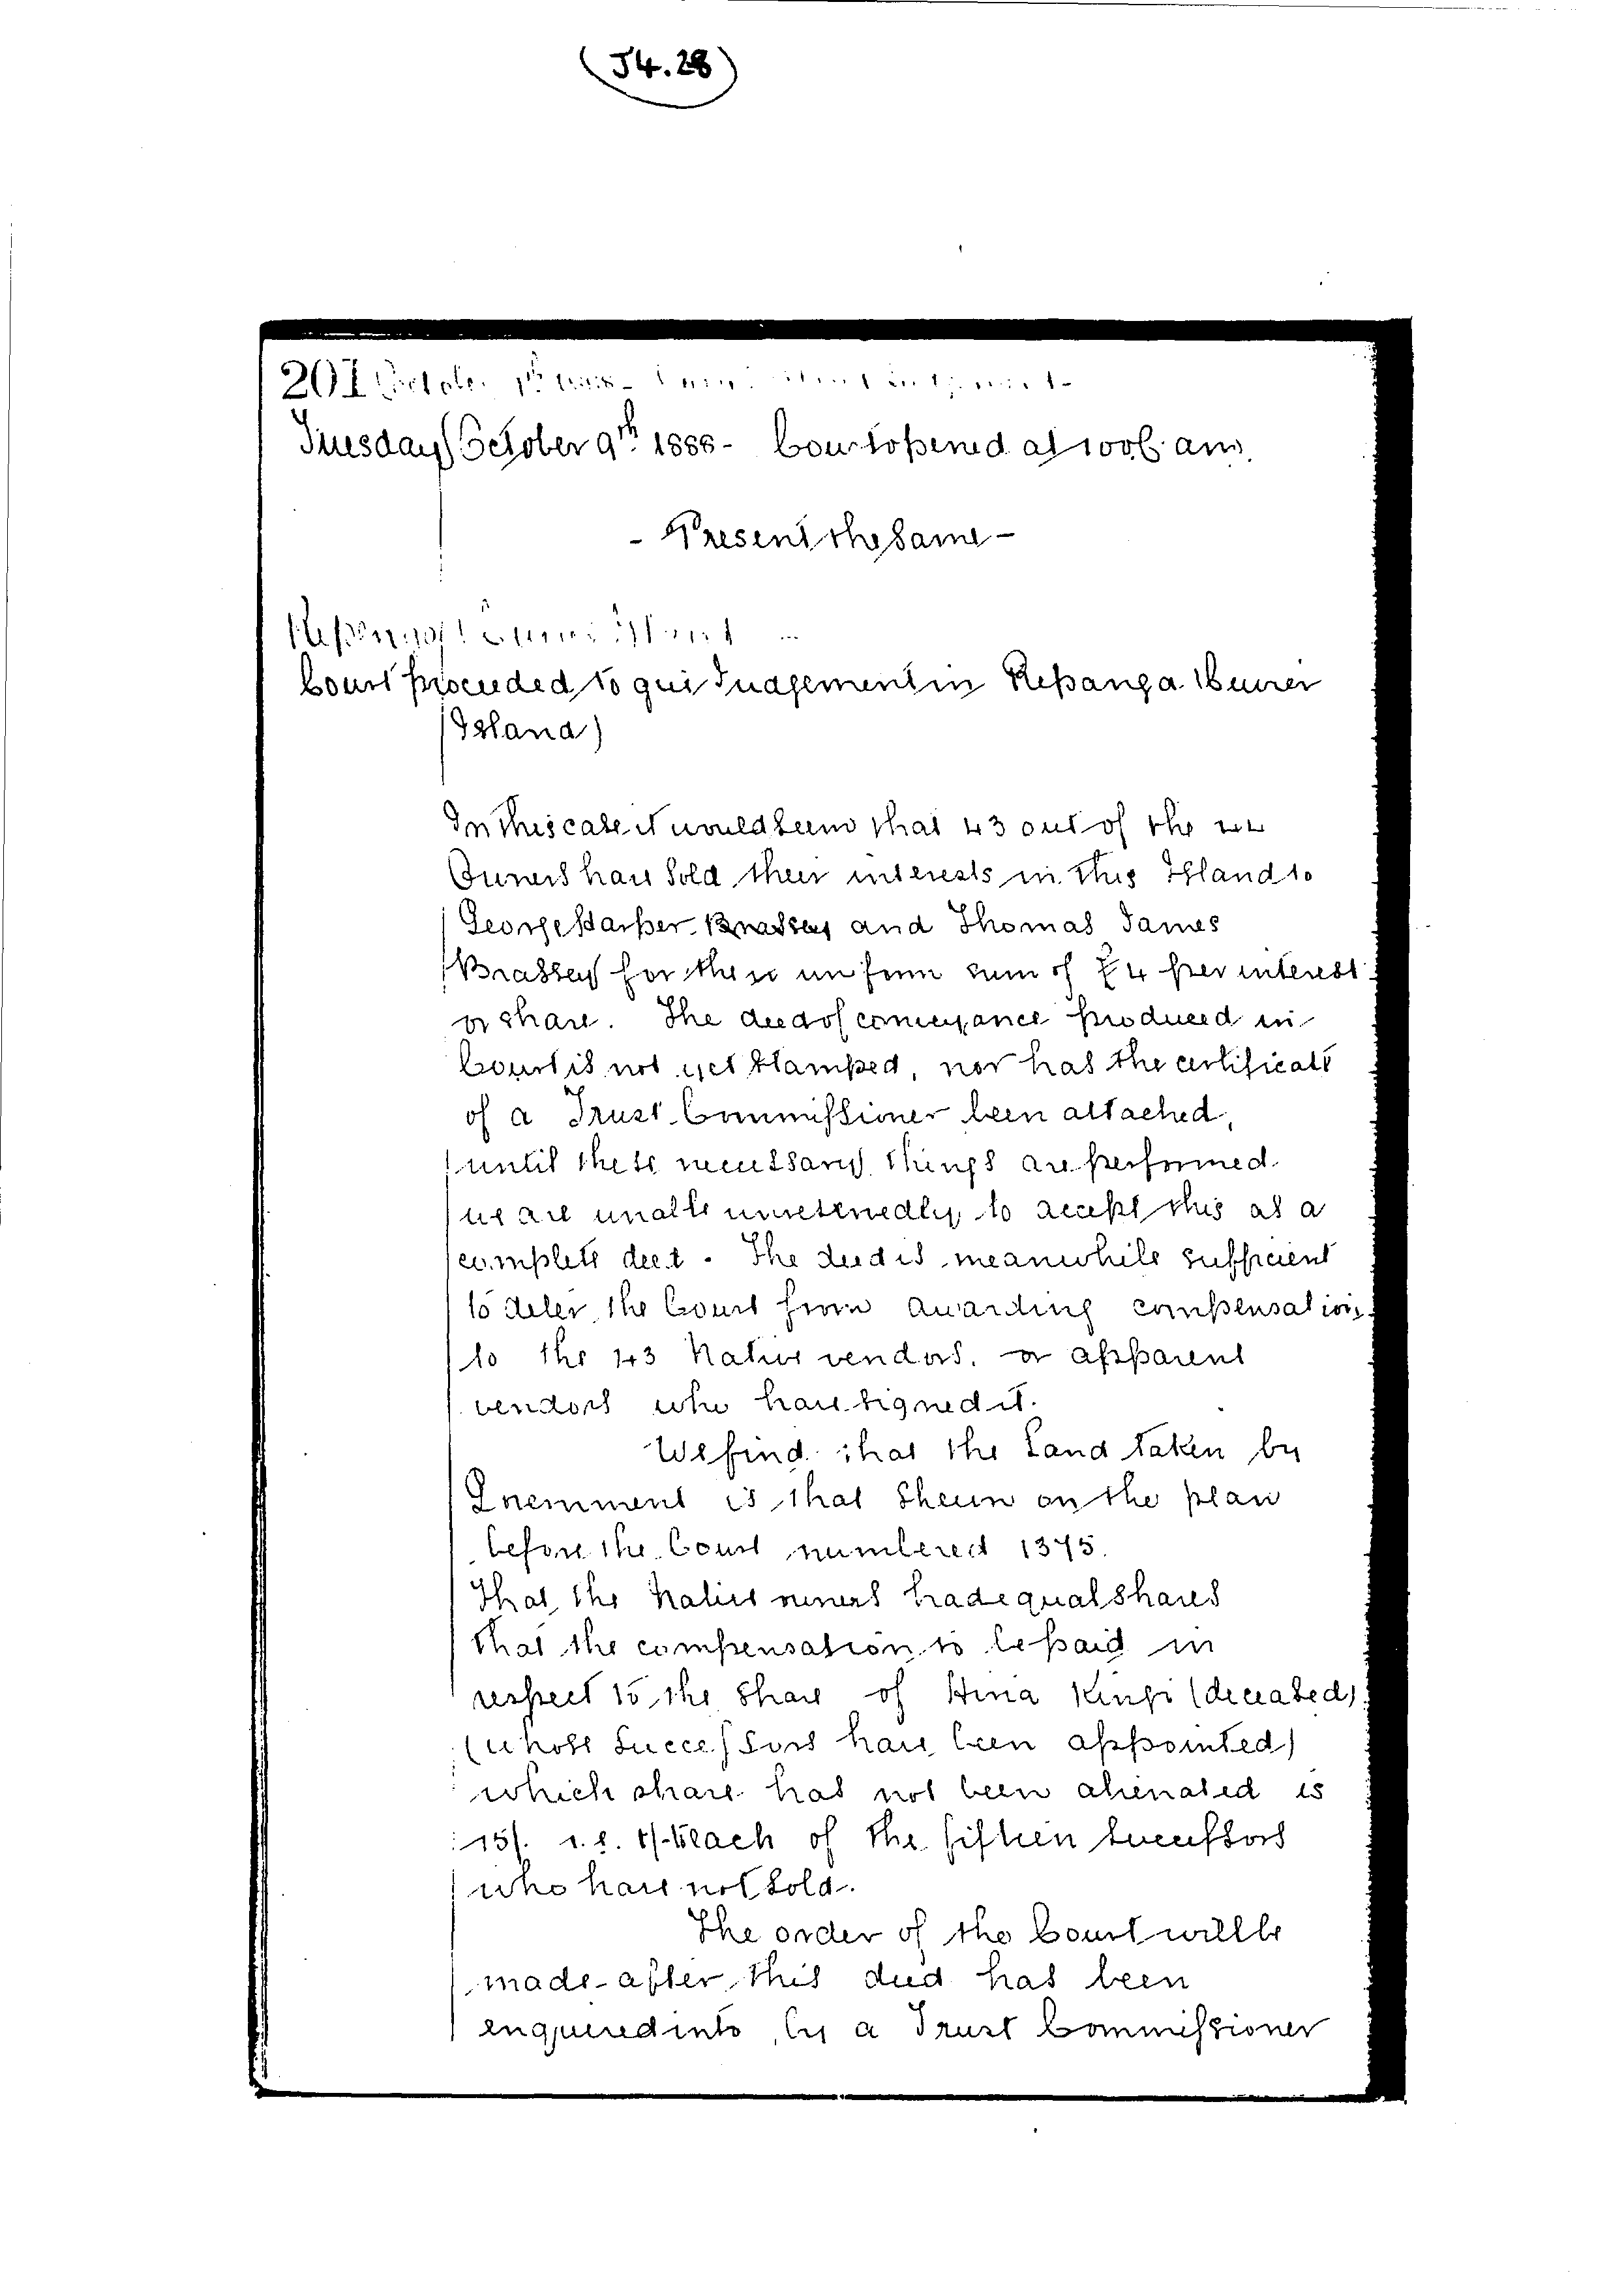 (J4.28)
201 October
Tuesday October 9th 1888 - Court opened at am.
- Present the same -
Court proceeded to give Judgement in Repanga (Cuvier
Island)
In this case it would seem that 43 out of the 44
Owners have sold their interests in this Island to
George Harper Brassey and Thomas James
Brassey for the uniform sum of £4 per interest
or share. The deed of conveyance produced in
Court is not yet stamped, nor has the certificate
of a Trust Commissioner been attached,
until these necessary things are performed
we are unable unreservedly to accept this as a
complete deed. The deed is meanwhile sufficient
to deter the Court from awarding compensation
to the 43 Native vendors, or apparent
vendors who have signed it.
We find that the Land taken by
Government is that shewn on the plan
before the Court numbered 1375.
That the Native owners had equal shares
that the compensation to be paid in
respect to the share of Hina Kingi (deceased)
(whose successors have been appointed)
which share has not been alienated is
15/. i.e. 1/- to each of the fifteen successors
who have not sold.
The order of the Court will be
made after this deed has been
enquired into, by a Trust Commissioner